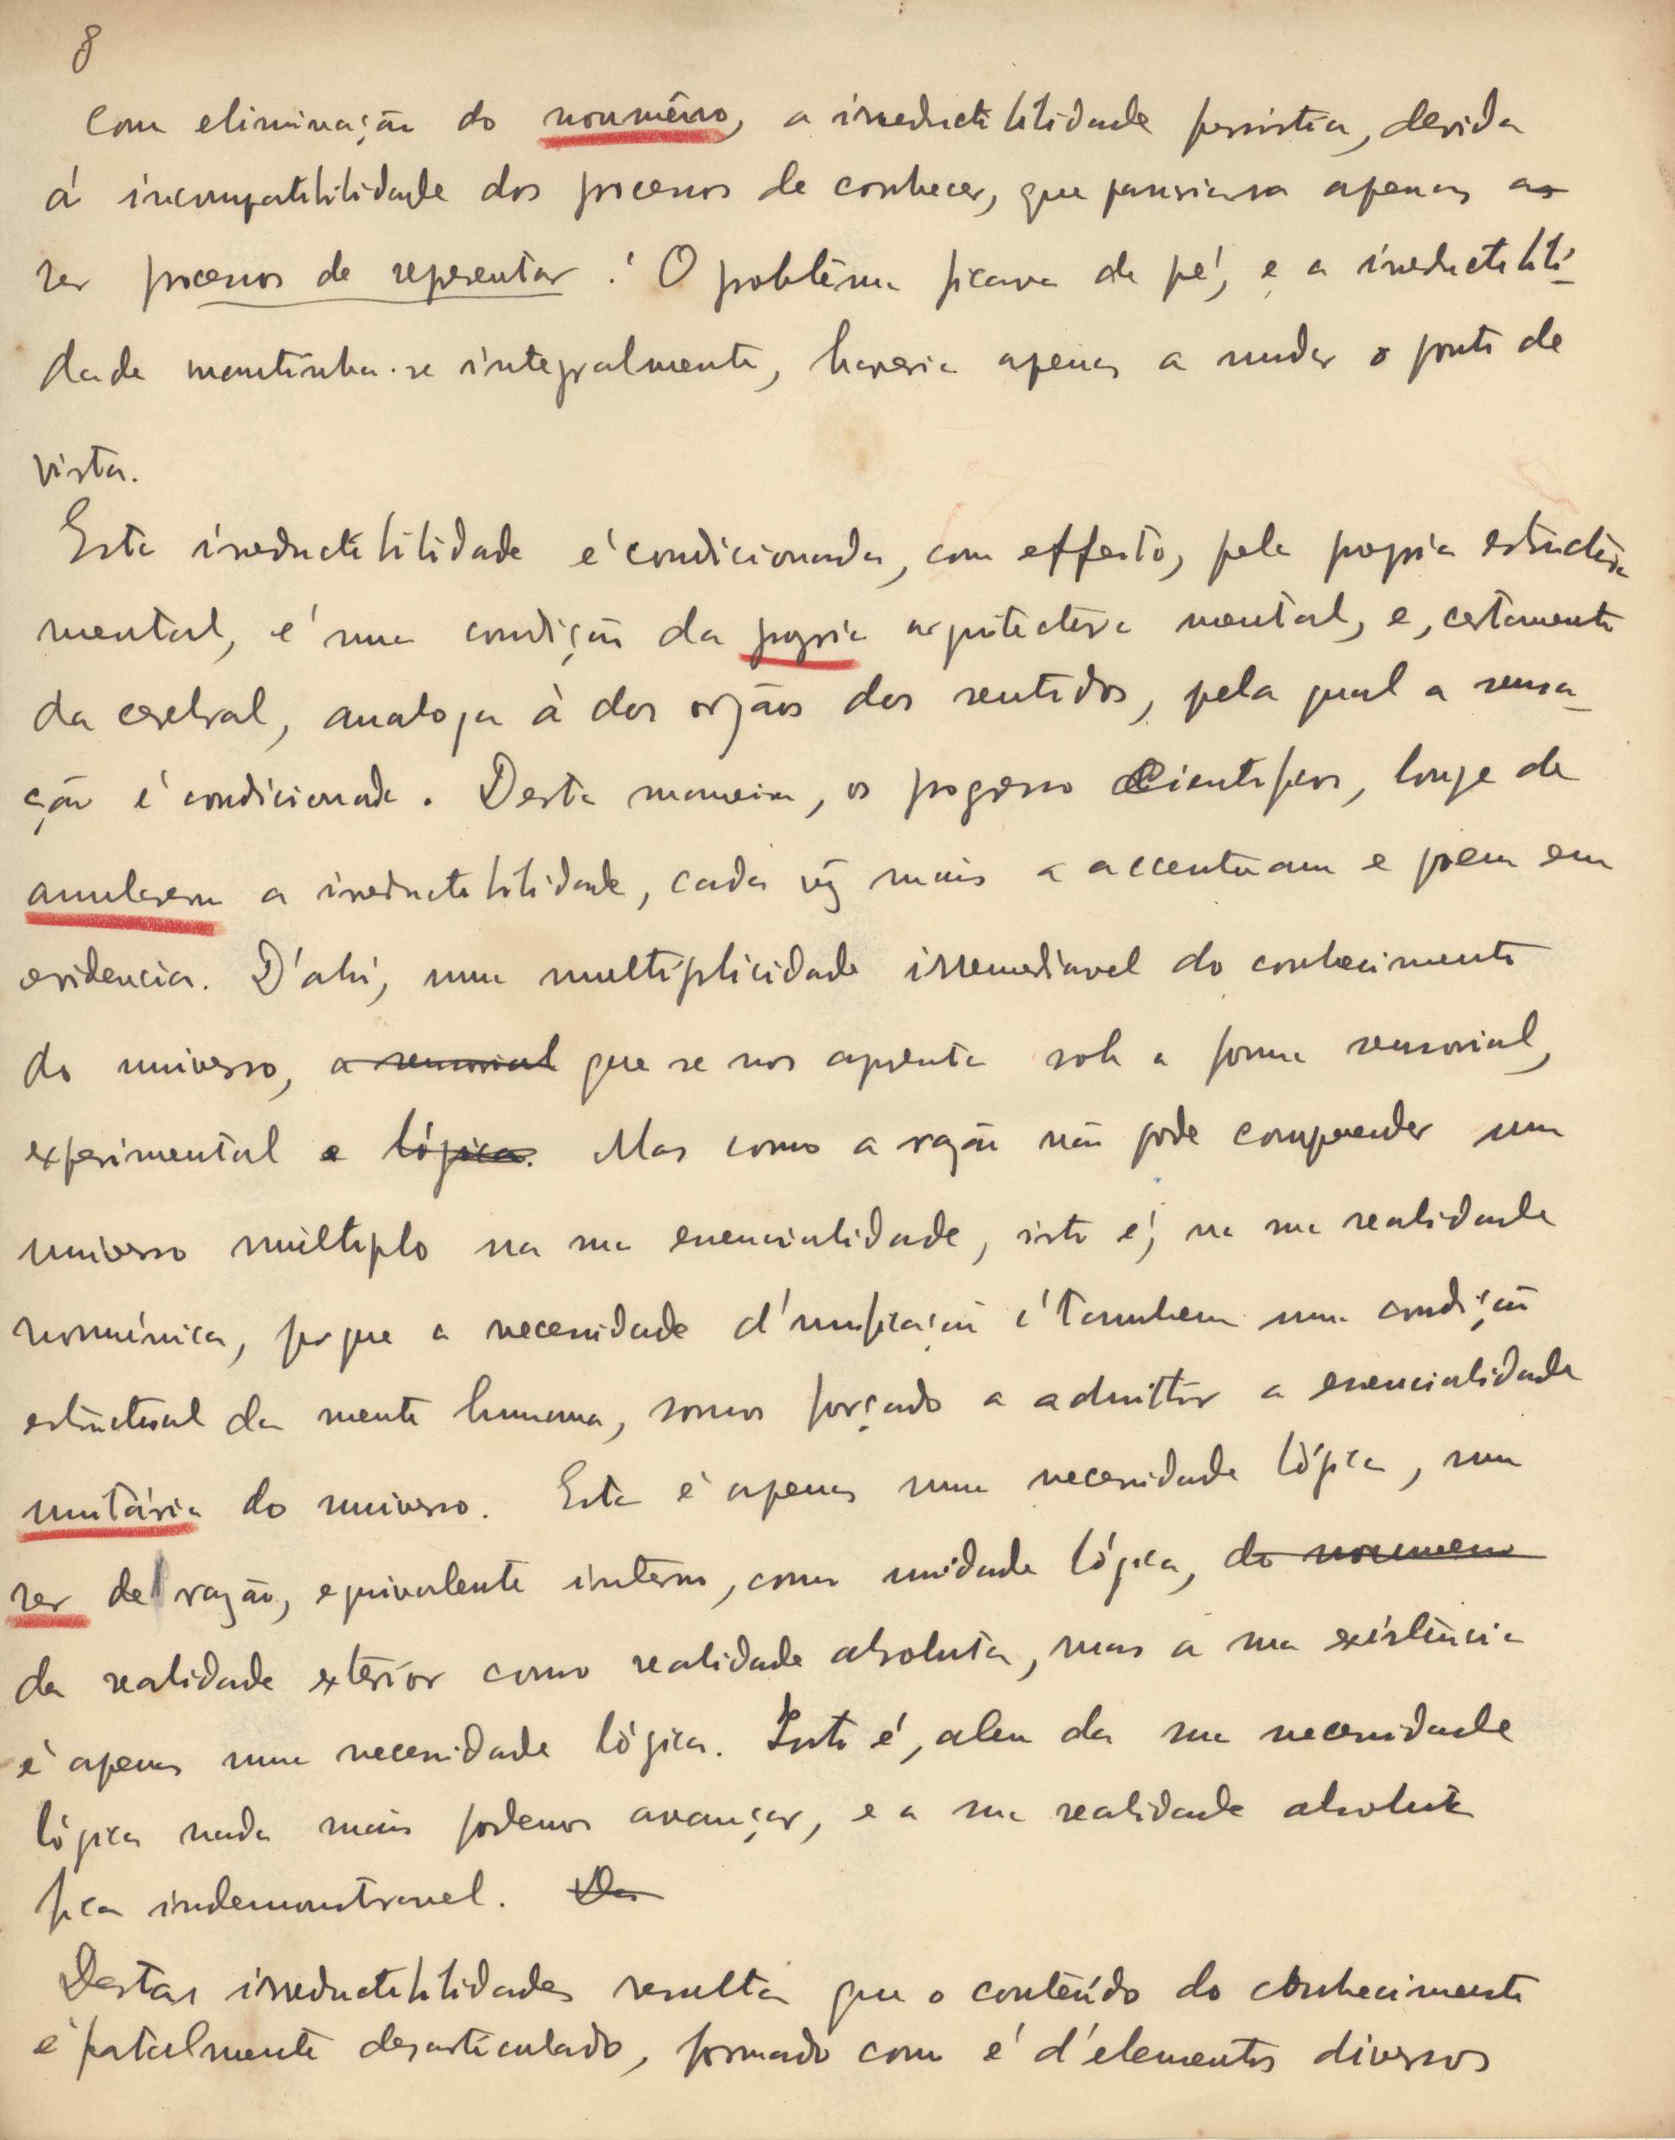 8
com eliminação do noumêno, a irreductibilidade persistia, devida
á incompatibilidade dos processos de conhecer, que passariam apenas a
ser processos de representar ! O problêma ficava de pé, e a irreductibili-
dade mantinha-se integralmente, haveria apenas a mudar o ponto de
vista.
Esta irreductibilidade é condicionada, com effeito, pela propria estructura
mental, é uma condição da propria arquitectura mental, e, certamente
da cerebral, analoga à dos orgãos dos sentidos, pela qual a sensa-
ção é condicionada. Desta maneira, os progressos scientificos, longe de
annularem a irreductibilidade, cada vez mais a accentuam e põem em
evidencia. D'ahi, uma multiplicidade irremediavel do conhecimento
do universo, a sensorial que se nos apresenta sob a forma sensorial,
experimental e lógica. Mas como a razão não pode comprehender um
universo múltiplo na sua essencialidade, isto é, na sua realidade
noumênica, porque a necessidade d'unificação é tambem uma condição
estructural da mente humana, somos forçados a admittir a essencialidade
unitária do universo. Esta é apenas uma necessidade lógica, um
ser de razão, equivalente interno, como unidade lógica, do noumeno
da realidade exterior como realidade absoluta, mas a sua existência
é apenas uma necessidade lógica. Isto é, alem da sua necessidade
lógica nada mais podemos avançar, e a sua realidade absoluta
fica indemonstravel. Da
Destas irreductibilidades resulta que o conteúdo do conhecimento
é fatalmente desarticulado, formado com é d'elementos diversos